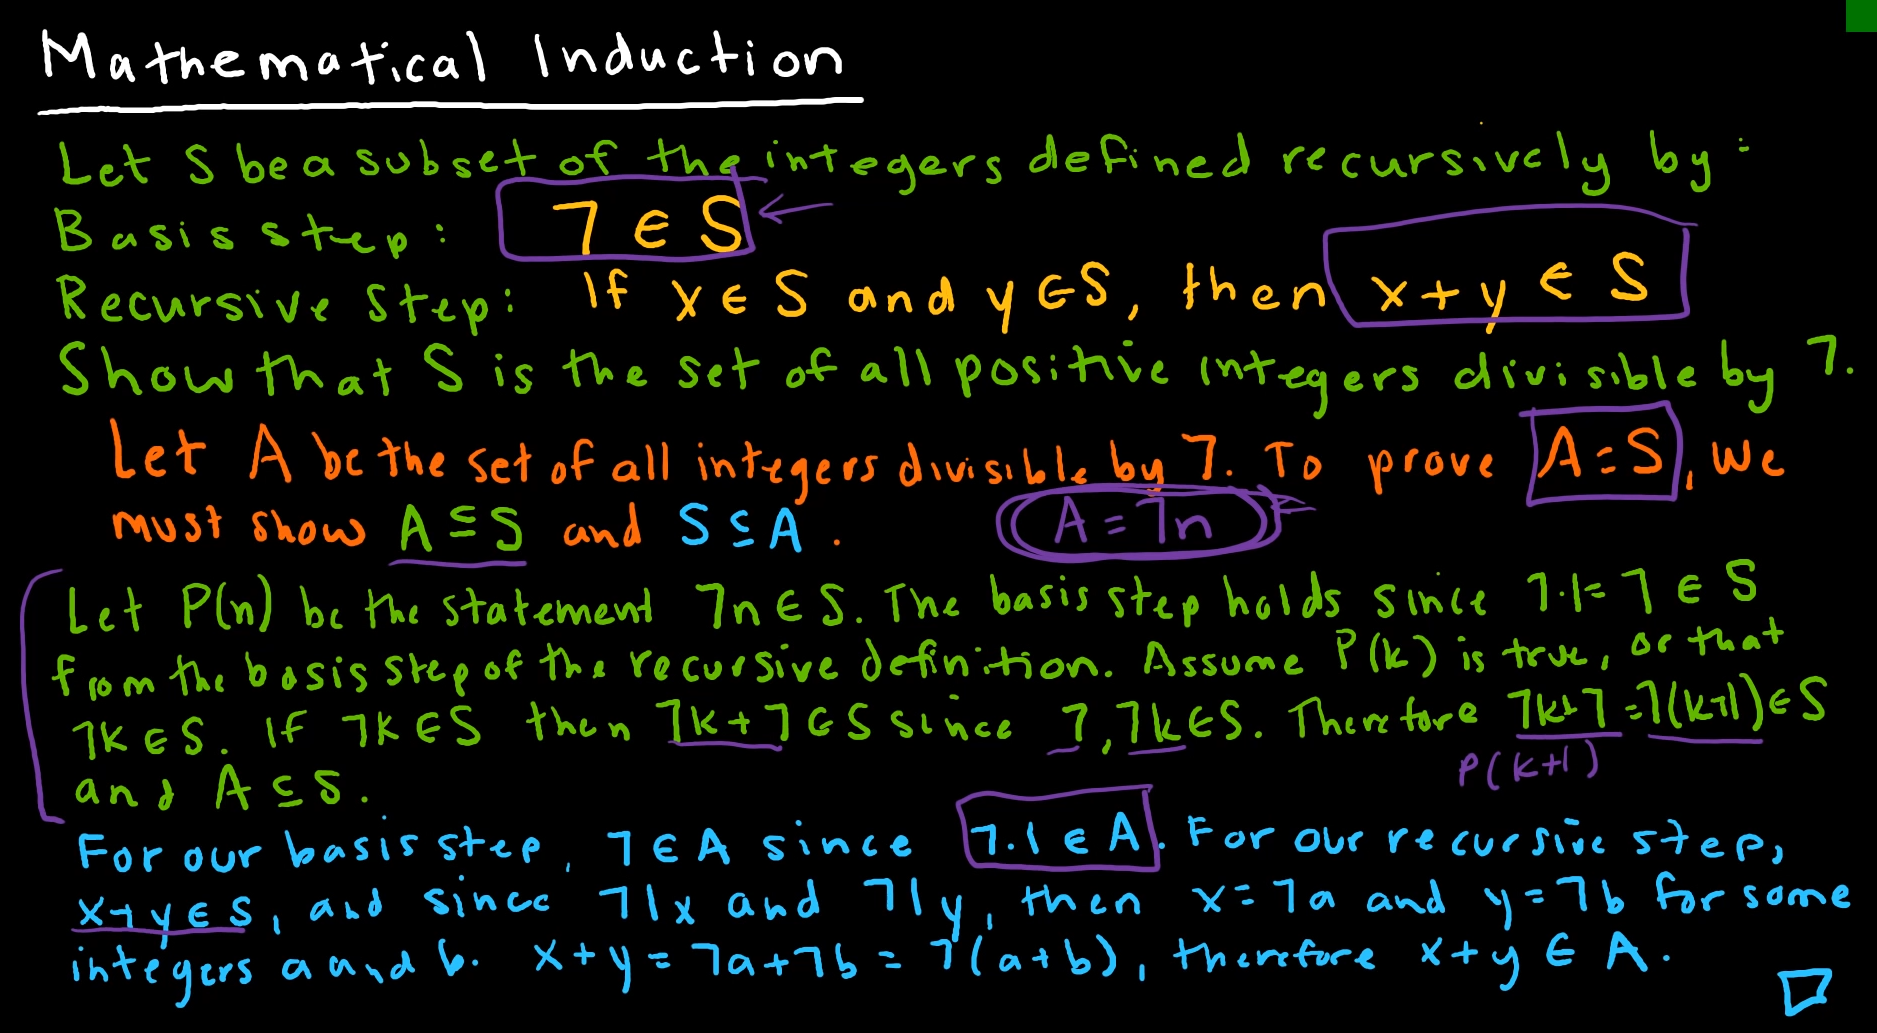 Mathematical Induction
Let S be a subset of the integers defined recursively by:
Basis step: 7 ∈ S
Recursive Step: If x ∈ S and y ∈ S, then x+y ∈ S
Show that S is the set of all positive integers divisible by 7.
Let A be the set of all integers divisible by 7. To prove A=S, we
must show A ⊆ S and S ⊆ A. A = 7n
Let P(n) be the statement 7n ∈ S. The basis step holds since 7·1= 7 ∈ S
from the basis step of the recursive definition. Assume P(k) is true, or that
7k ∈ S. If 7k ∈ S then 7k+7 ∈ S since 7, 7k ∈ S. Therefore 7k+7 = 7(k+1) ∈ S
P(k+1)
and A ⊆ S.
For our basis step, 7 ∈ A since 7·1 ∈ A. For our recursive step,
x+y ∈ S, and since 7|x and 7|y, then x=7a and y=7b for some
integers a and b. x+y = 7a+7b = 7(a+b), therefore x+y ∈ A.